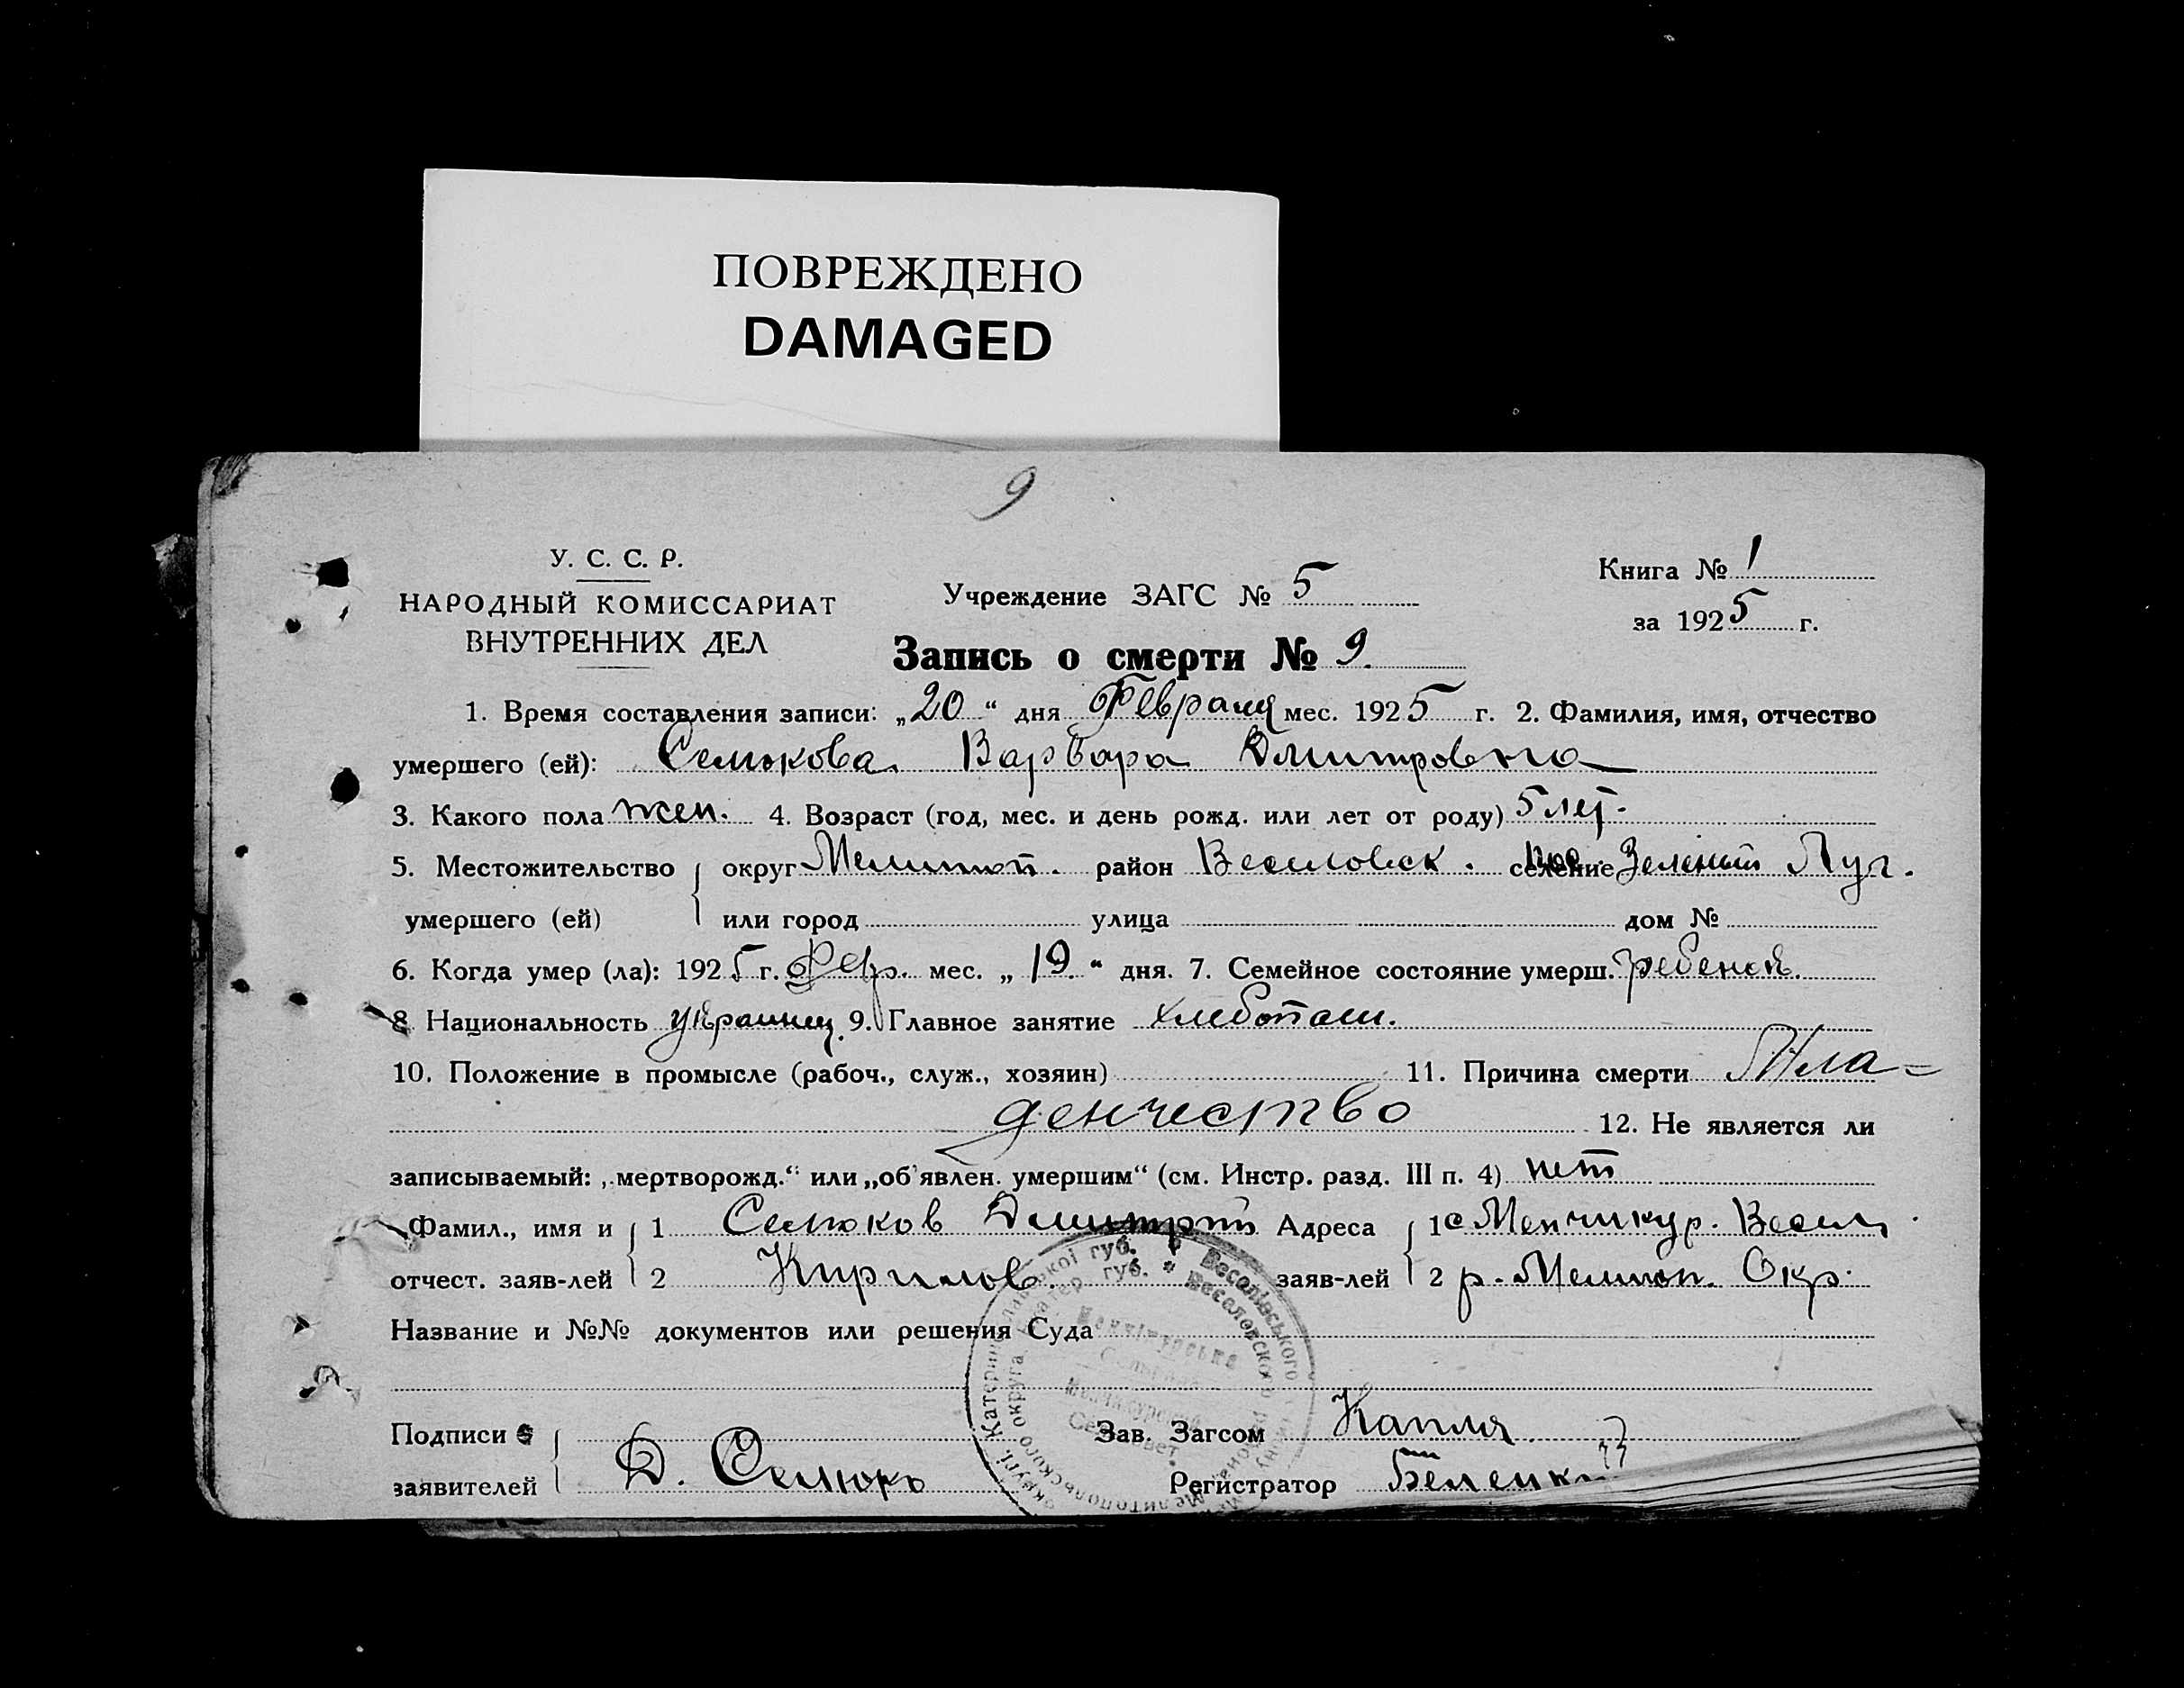 ПОВРЕЖДЕНО
DAMAGED
9
У. С. С. Р.
НАРОДНЫЙ КОМИССАРИАТ
ВНУТРЕННИХ ДЕЛ
Учреждение ЗАГС № 5
Книга № 1
за 1925 г.
Запись о смерти № 9.
1. Время составления записи: „20“ дня Февраля мес. 1925 г. 2. Фамилия, имя, отчество
умершего (ей): Селюкова Варвара Дмитровна
3. Какого пола жен. 4. Возраст (год, мес. и день рожд. или лет от роду) 5 лет.
5. Местожительство округ Мелитоп. район Веселовск. селение Пос. Зеленый Луг.
умершего (ей) или город улица дом №
6. Когда умер (ла): 1925 г. Февр. мес. „19.“ дня. 7. Семейное состояние умерш. ребенок.
8 Национальность украинец. 9. Главное занятие хлебопаш.
10. Положение в промысле (рабоч., служ., хозяин) 11. Причина смерти Мла=
денчество 12. Не является ли
записываемый: „мертворожд.“ или „об'явлен. умершим“ (см. Инстр. разд. III п. 4) нет
Фамил., имя и 1 Селюков Дмитрий Адреса 1 с Менчикур. Весел.
отчест. заяв-лей 2 Кирилов. заяв-лей 2 р. Мелитоп. Окр.
Название и №№ документов или решения Суда
Подписи Зав. Загсом Капля
заявителей Д. Селюкъ Регистратор Белецкий